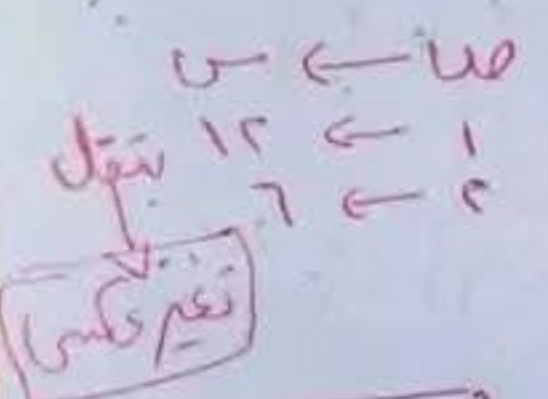 ص ← س
١ ← ١٢
٢ ← ٦
تقل
تغير عكسي